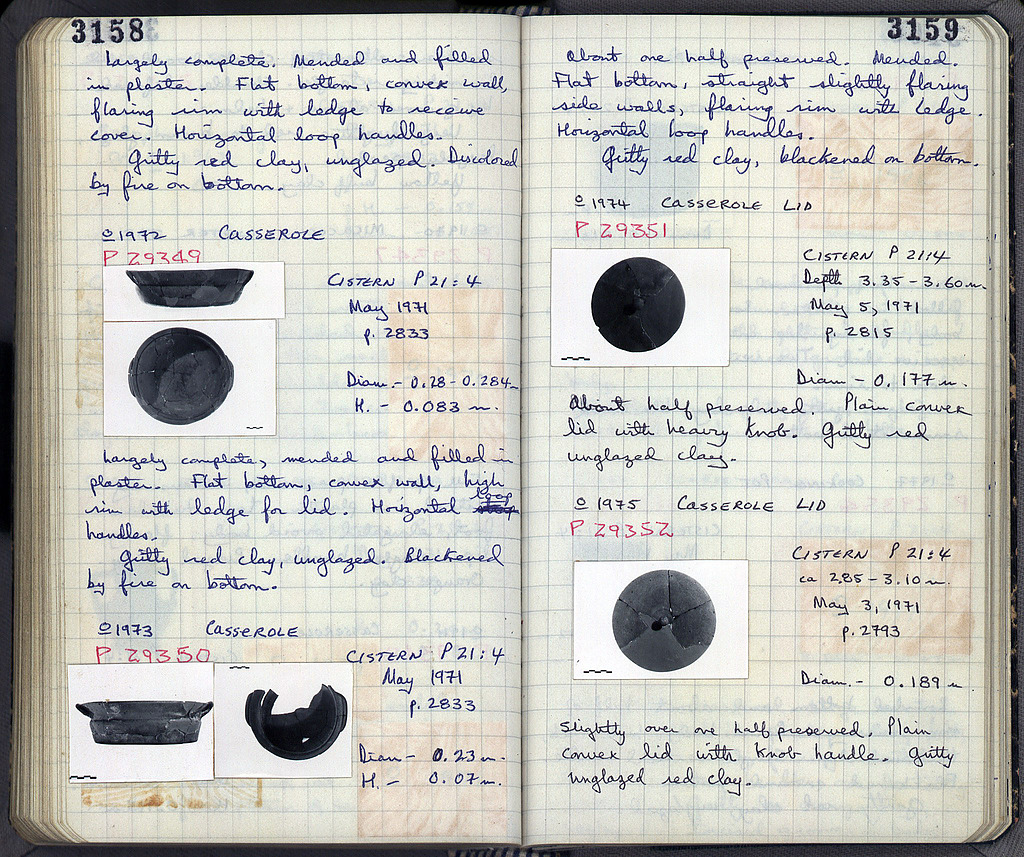 3158
Largely complete. Mended and filled
in plaster. Flat bottom, convex wall,
flaring rim with ledge to receive
cover. Horizontal loop handles.
Gritty red clay, unglazed. Discolored
by fire on bottom.
O 1972 CASSEROLE
P 29349
CISTERN P 21:4
May 1971
p. 2833
Diam. - 0.28 - 0.284 m
H. - 0.083 m.
Largely complete, mended and filled in
plaster. Flat bottom, convex wall, high
rim with ledge for lid. Horizontal loop
handles.
Gritty red clay, unglazed. Blackened
by fire on bottom.
O 1973 CASSEROLE
P 29350
CISTERN P 21:4
May 1971
p. 2833
Diam - 0.23 m.
H. - 0.07 m.
3159
About one half preserved. Mended.
Flat bottom, straight slightly flaring
side walls, flaring rim with ledge.
Horizontal loop handles.
Gritty red clay, blackened on bottom.
O 1974 CASSEROLE LID
P 29351
CISTERN P 21:4
Depth 3.35 - 3.60 m.
May 5, 1971
p. 2815
Diam - 0.177 m.
About half preserved. Plain convex
lid with heavy knob. Gritty red
unglazed clay.
O 1975 CASSEROLE LID
P 29352
CISTERN P 21:4
ca 2.85 - 3.10 m.
May 3, 1971
p. 2793
Diam. - 0.189 m
Slightly over one half preserved. Plain
convex lid with knob handle. Gritty
unglazed red clay.